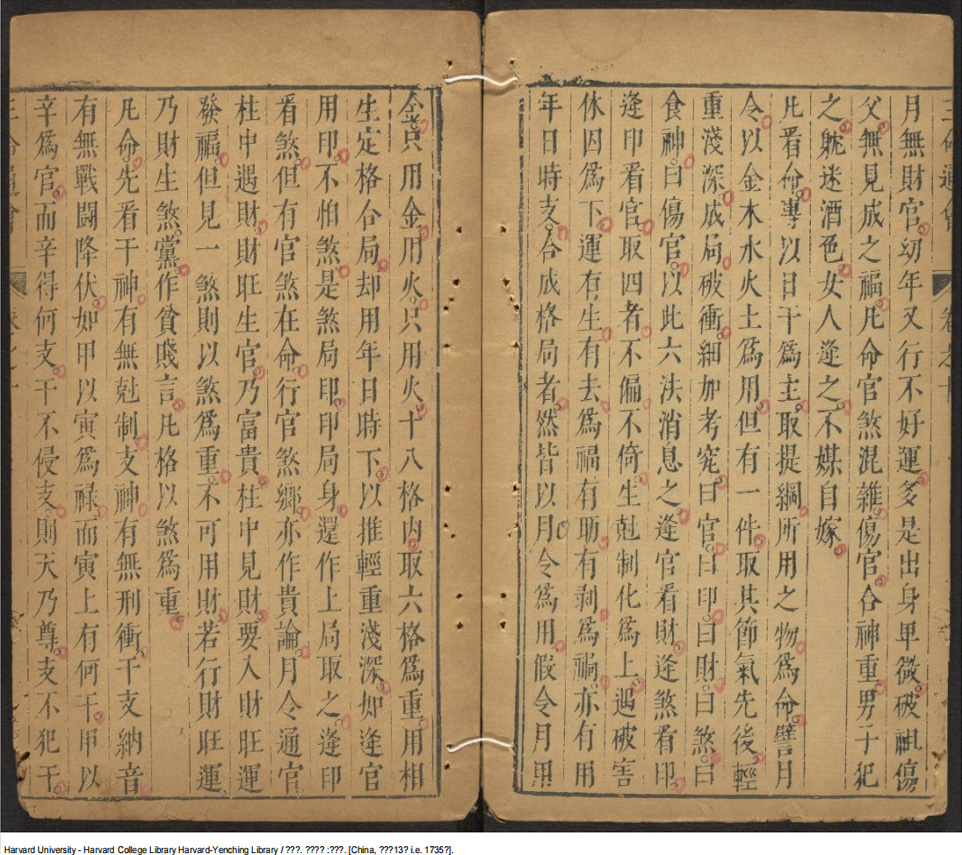 三命通會 卷之十
月無財官幼年又行不好運多是出身卑微破祖傷
父無見成之福凡命官煞混雜傷官合神重男子犯
之躭迷酒色女人逢之不媒自嫁
凡看命專以日干為主取提綱所用之物為命譬月
令以金木水火土為用但有一件取其節氣先後輕
重淺深成局破衝細加考究曰官曰印曰財曰煞曰
食神曰傷官以此六法消息之逢官看財逢煞看印
逢印看官取四者不偏不倚生尅制化為上遇破害
休囚為下運有生有去為福有助有剥為禍亦有用
年日時支合成格局者然皆以月令為用假令月果
金只用金用火只用火十八格内取六格為重用相
生定格合局却用年日時下以推輕重淺深如逢官
用印不怕煞是煞局印印局身還作上局取之逢印
看煞但有官煞在命行官煞鄉亦作貴論月令通官
柱中遇財財旺生官乃富貴柱中見財要入財旺運
發福但見一煞則以煞為重不可用財若行財旺運
乃財生煞黨作貧賤言凡格以煞為重
凡命先看干神有無尅制支神有無刑衝干支納音
有無戰鬪降伏如甲以寅為祿而寅上有何干甲以
辛為官而辛得何支干不侵支則天乃尊支不犯干
Harvard University - Harvard College Library Harvard-Yenching Library / ???. ???? :???. [China, ???13? i.e. 1735?].